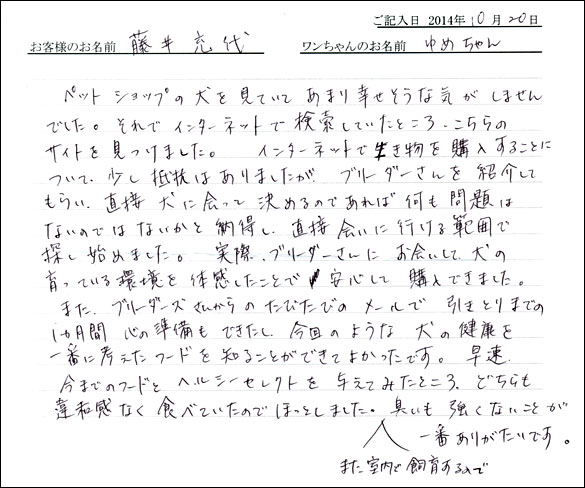 ご記入日 2014年 10月 20日
お客様のお名前 藤井充代 ワンちゃんのお名前 ゆめちゃん
ペットショップの犬を見ていて あまり幸せそうな気がしません
でした。それでインターネットで検索していたところ、こちらの
サイトを見つけました。 インターネットで生き物を購入することに
ついて、少し抵抗はありましたが、ブリーダーさんを紹介して
もらい、直接犬に会って決めるのであれば何も問題は
ないのではないかと納得し、直接会いに行ける範囲で
探し始めました。 実際、ブリーダーさんにお会いして、犬の
育っている環境を体感したことで 安心して購入できました。
また、ブリーダーズさんからのたびたびのメールで 引きとりまでの
1ヵ月間 心の準備もできたし、今回のような犬の健康を
一番に考えたフードを知ることができてよかったです。早速、
今までのフードとヘルシーセレクトを与えてみたところ、どちらも
違和感なく食べていたのでほっとしました。臭いも強くないことが
一番ありがたいです。
また室内で飼育するので